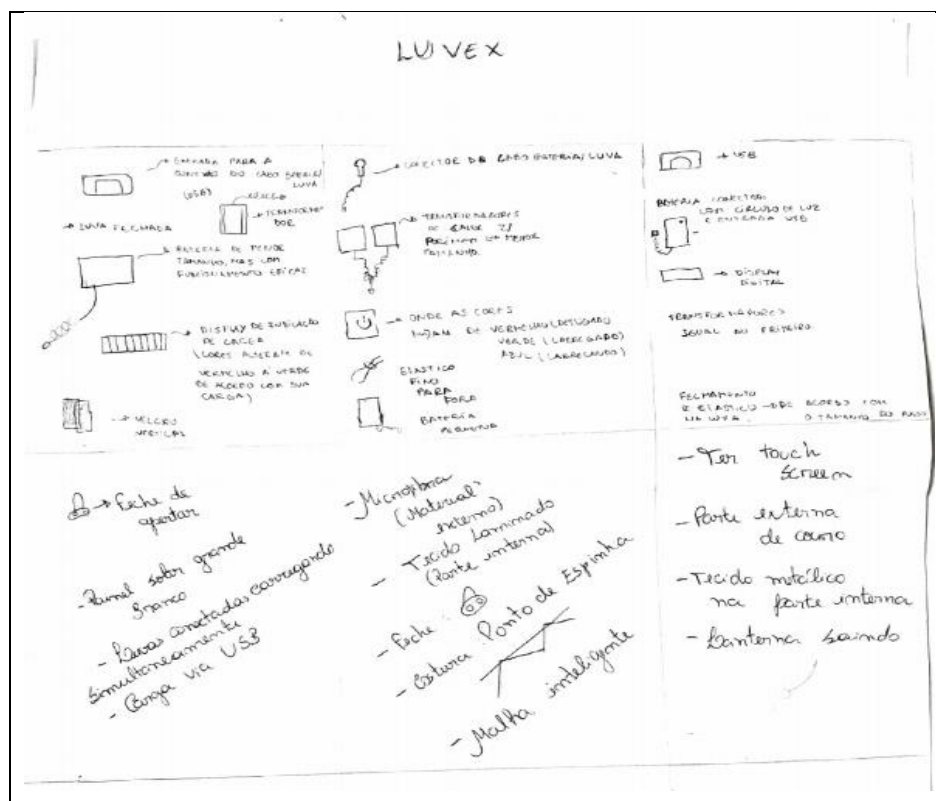 LUVEX
ENTRADA PARA A
CONEXÃO DO CABO BATERIA/
LUVA
(USB)
TRANSFORMA
DOR
LUVA FECHADA
BATERIA DE MENOR
TAMANHO, MAS COM
FUNCIONAMENTO EFICAZ
DISPLAY DE INDICAÇÃO
DE CARGA
(CORES ALTERAM DE
VERMELHO À VERDE
DE ACORDO COM SUA
CARGA)
VELCRO
VERTICAL
CONECTOR DO CABO BATERIA/LUVA
TRANSFORMADORES
DE CALOR
DE MENOR
TAMANHO
ONDE AS CORES
DE VERMELHO (DESLIGADO)
VERDE (CARREGADO)
AZUL (CARREGANDO)
ELASTICO
FINO
PARA
FORA
BATERIA
PEQUENA
USB
BATERIA CONECTOR
COM CIRCULO DE LUZ
E ENTRADA USB
DISPLAY
DIGITAL
TRANSFORMADORES
IGUAL AO PRIMEIRO
FECHAMENTO
E ELASTICO DE ACORDO COM
NA LUVA. O TAMANHO DO PULSO
Feche de
apertar
- Painel solar grande
Branco
- Luvas conectadas carregando
simultaneamente
- Carga via USB
- Microfibra
(Material
externo)
- Tecido Laminado
(Parte interna)
- Feche:
- Costura: Ponto de Espinha
- Malha inteligente
- Ter touch
screen
- Parte externa
de couro
- Tecido metálico
na parte interna
- Lanterna saindo